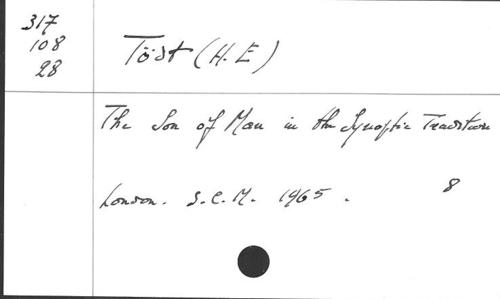 317
108
28
Tödt (H. E)
The Son of Man in the Synoptic Tradition
London. S.C.M. 1965. 8